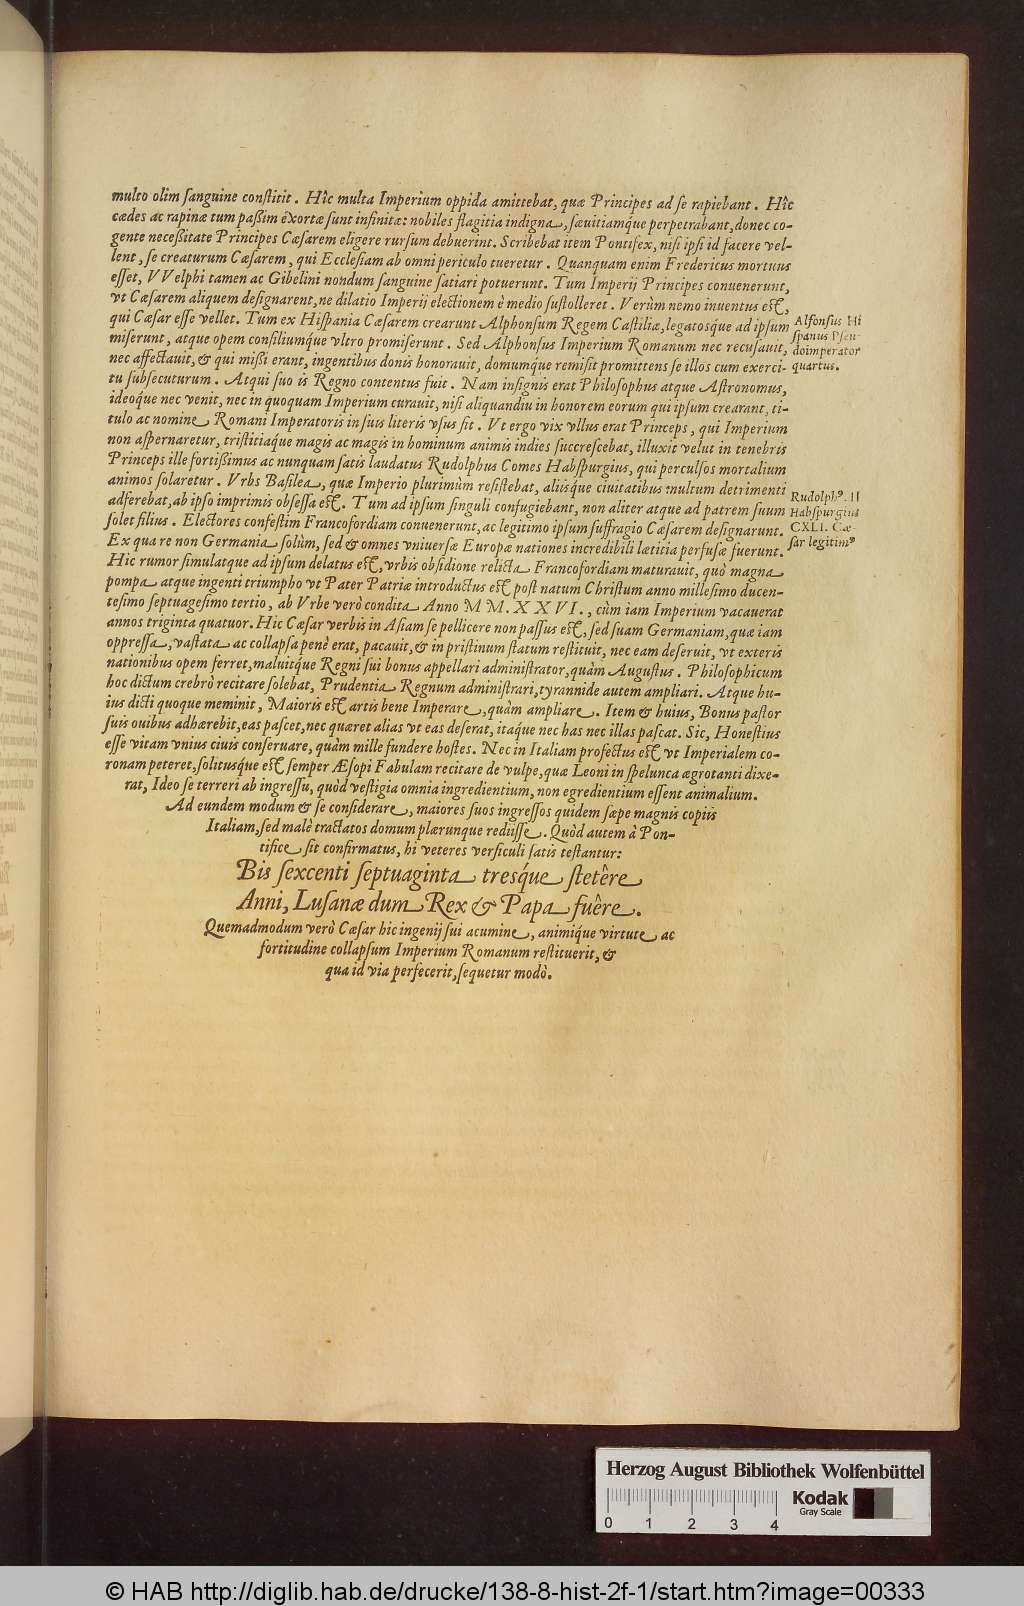 multo olim ſanguine conſtitit. Hîc multa Imperium oppida amittebat, quæ Principes ad ſe rapiebant. Hîc
cædes ac rapinæ tum paßim exortæ ſunt infinitæ: nobiles flagitia indigna, ſæuitiamque perpetrabant, donec co-
gente neceßitate Principes Cæſarem eligere rurſum debuerint. Scribebat item Pontifex, niſi ipſi id facere vel-
lent, ſe creaturum Cæſarem, qui Eccleſiam ab omni periculo tueretur. Quanquam enim Fredericus mortuus
eſſet, VVelphi tamen ac Gibelini nondum ſanguine ſatiari potuerunt. Tum Imperij Principes conuenerunt,
vt Cæſarem aliquem deſignarent, ne dilatio Imperij electionem è medio ſuſtolleret. Verùm nemo inuentus eſt,
qui Cæſar eſſe vellet. Tum ex Hiſpania Cæſarem crearunt Alphonſum Regem Caſtiliæ, legatosq́ue ad ipſum
miſerunt, atque opem conſiliumq́ue vltro promiſerunt. Sed Alphonſus Imperium Romanum nec recuſauit,
nec affectauit, & qui mißi erant, ingentibus donis honorauit, domumq́ue remiſit promittens ſe illos cum exerci-
tu ſubſecuturum. Atqui ſuo is Regno contentus fuit. Nam inſignis erat Philoſophus atque Aſtronomus,
ideoq́ue nec venit, nec in quoquam Imperium curauit, niſi aliquandiu in honorem eorum qui ipſum crearant, ti-
tulo ac nomine Romani Imperatoris in ſuis literis vſus ſit. Vt ergo vix vllus erat Princeps, qui Imperium
non aſpernaretur, triſtitiaque magis ac magis in hominum animis indies ſuccreſcebat, illuxit velut in tenebris
Princeps ille fortißimus ac nunquam ſatis laudatus Rudolphus Comes Habſpurgius, qui perculſos mortalium
animos ſolaretur. Vrbs Baſilea, quæ Imperio plurimùm reſiſtebat, aliisq́ue ciuitatibus multum detrimenti
adferebat, ab ipſo imprimis obſeſſa eſt. Tum ad ipſum ſinguli confugiebant, non aliter atque ad patrem ſuum
ſolet filius. Electores confeſtim Francofordiam conuenerunt, ac legitimo ipſum ſuffragio Cæſarem deſignarunt.
Ex qua re non Germania ſolùm, ſed & omnes vniuerſæ Europæ nationes incredibili lætitia perfuſæ fuerunt.
Hic rumor ſimulatque ad ipſum delatus eſt, vrbis obſidione relicta Francofordiam maturauit, quò magna
pompa atque ingenti triumpho vt Pater Patriæ introductus eſt poſt natum Chriſtum anno milleſimo ducen-
teſimo ſeptuageſimo tertio, ab Vrbe verò condita Anno MM. XXVI., cùm iam Imperium vacauerat
annos triginta quatuor. Hic Cæſar verbis in Aſiam ſe pellicere non paſſus eſt, ſed ſuam Germaniam, quæ iam
oppreſſa, vaſtata ac collapſa penè erat, pacauit, & in priſtinum ſtatum reſtituit, nec eam deſeruit, vt exteris
nationibus opem ferret, maluitq́ue Regni ſui bonus appellari adminiſtrator, quàm Auguſtus. Philoſophicum
hoc dictum crebrò recitare ſolebat, Prudentia Regnum adminiſtrari, tyrannide autem ampliari. Atque hu-
ius dicti quoque meminit, Maioris eſt artis bene Imperare, quàm ampliare. Item & huius, Bonus paſtor
ſuis ouibus adhærebit, eas paſcet, nec quæret alias vt eas deſerat, itaq́ue nec has nec illas paſcat. Sic, Honeſtius
eſſe vitam vnius ciuis conſeruare, quàm mille fundere hoſtes. Nec in Italiam profectus eſt vt Imperialem co-
ronam peteret, ſolitusq́ue eſt ſemper Æſopi Fabulam recitare de vulpe, quæ Leoni in ſpelunca ægrotanti dixe-
rat, Ideo ſe terreri ab ingreſſu, quòd veſtigia omnia ingredientium, non egredientium eſſent animalium.
Ad eundem modum & ſe conſiderare, maiores ſuos ingreſſos quidem ſæpe magnis copiis
Italiam, ſed malè tractatos domum plærunque rediiſſe. Quòd autem à Pon-
tifice ſit confirmatus, hi veteres verſiculi ſatis teſtantur:
Bis ſexcenti ſeptuaginta tresq́ue ſtetêre
Anni, Luſanæ dum Rex & Papa fuêre.
Quemadmodum verò Cæſar hic ingenij ſui acumine, animiq́ue virtute ac
fortitudine collapſum Imperium Romanum reſtituerit, &
qua id via perfecerit, ſequetur modò.
Alfonſus Hi
ſpanus Pſeu-
doimperator
quartus.
Rudolphꝰ. II
Habſpurgius
CXLI. Cæ-
ſar legitimꝰ
Herzog August Bibliothek Wolfenbüttel
0 1 2 3 4
Kodak
Gray Scale
© HAB http://diglib.hab.de/drucke/138-8-hist-2f-1/start.htm?image=00333